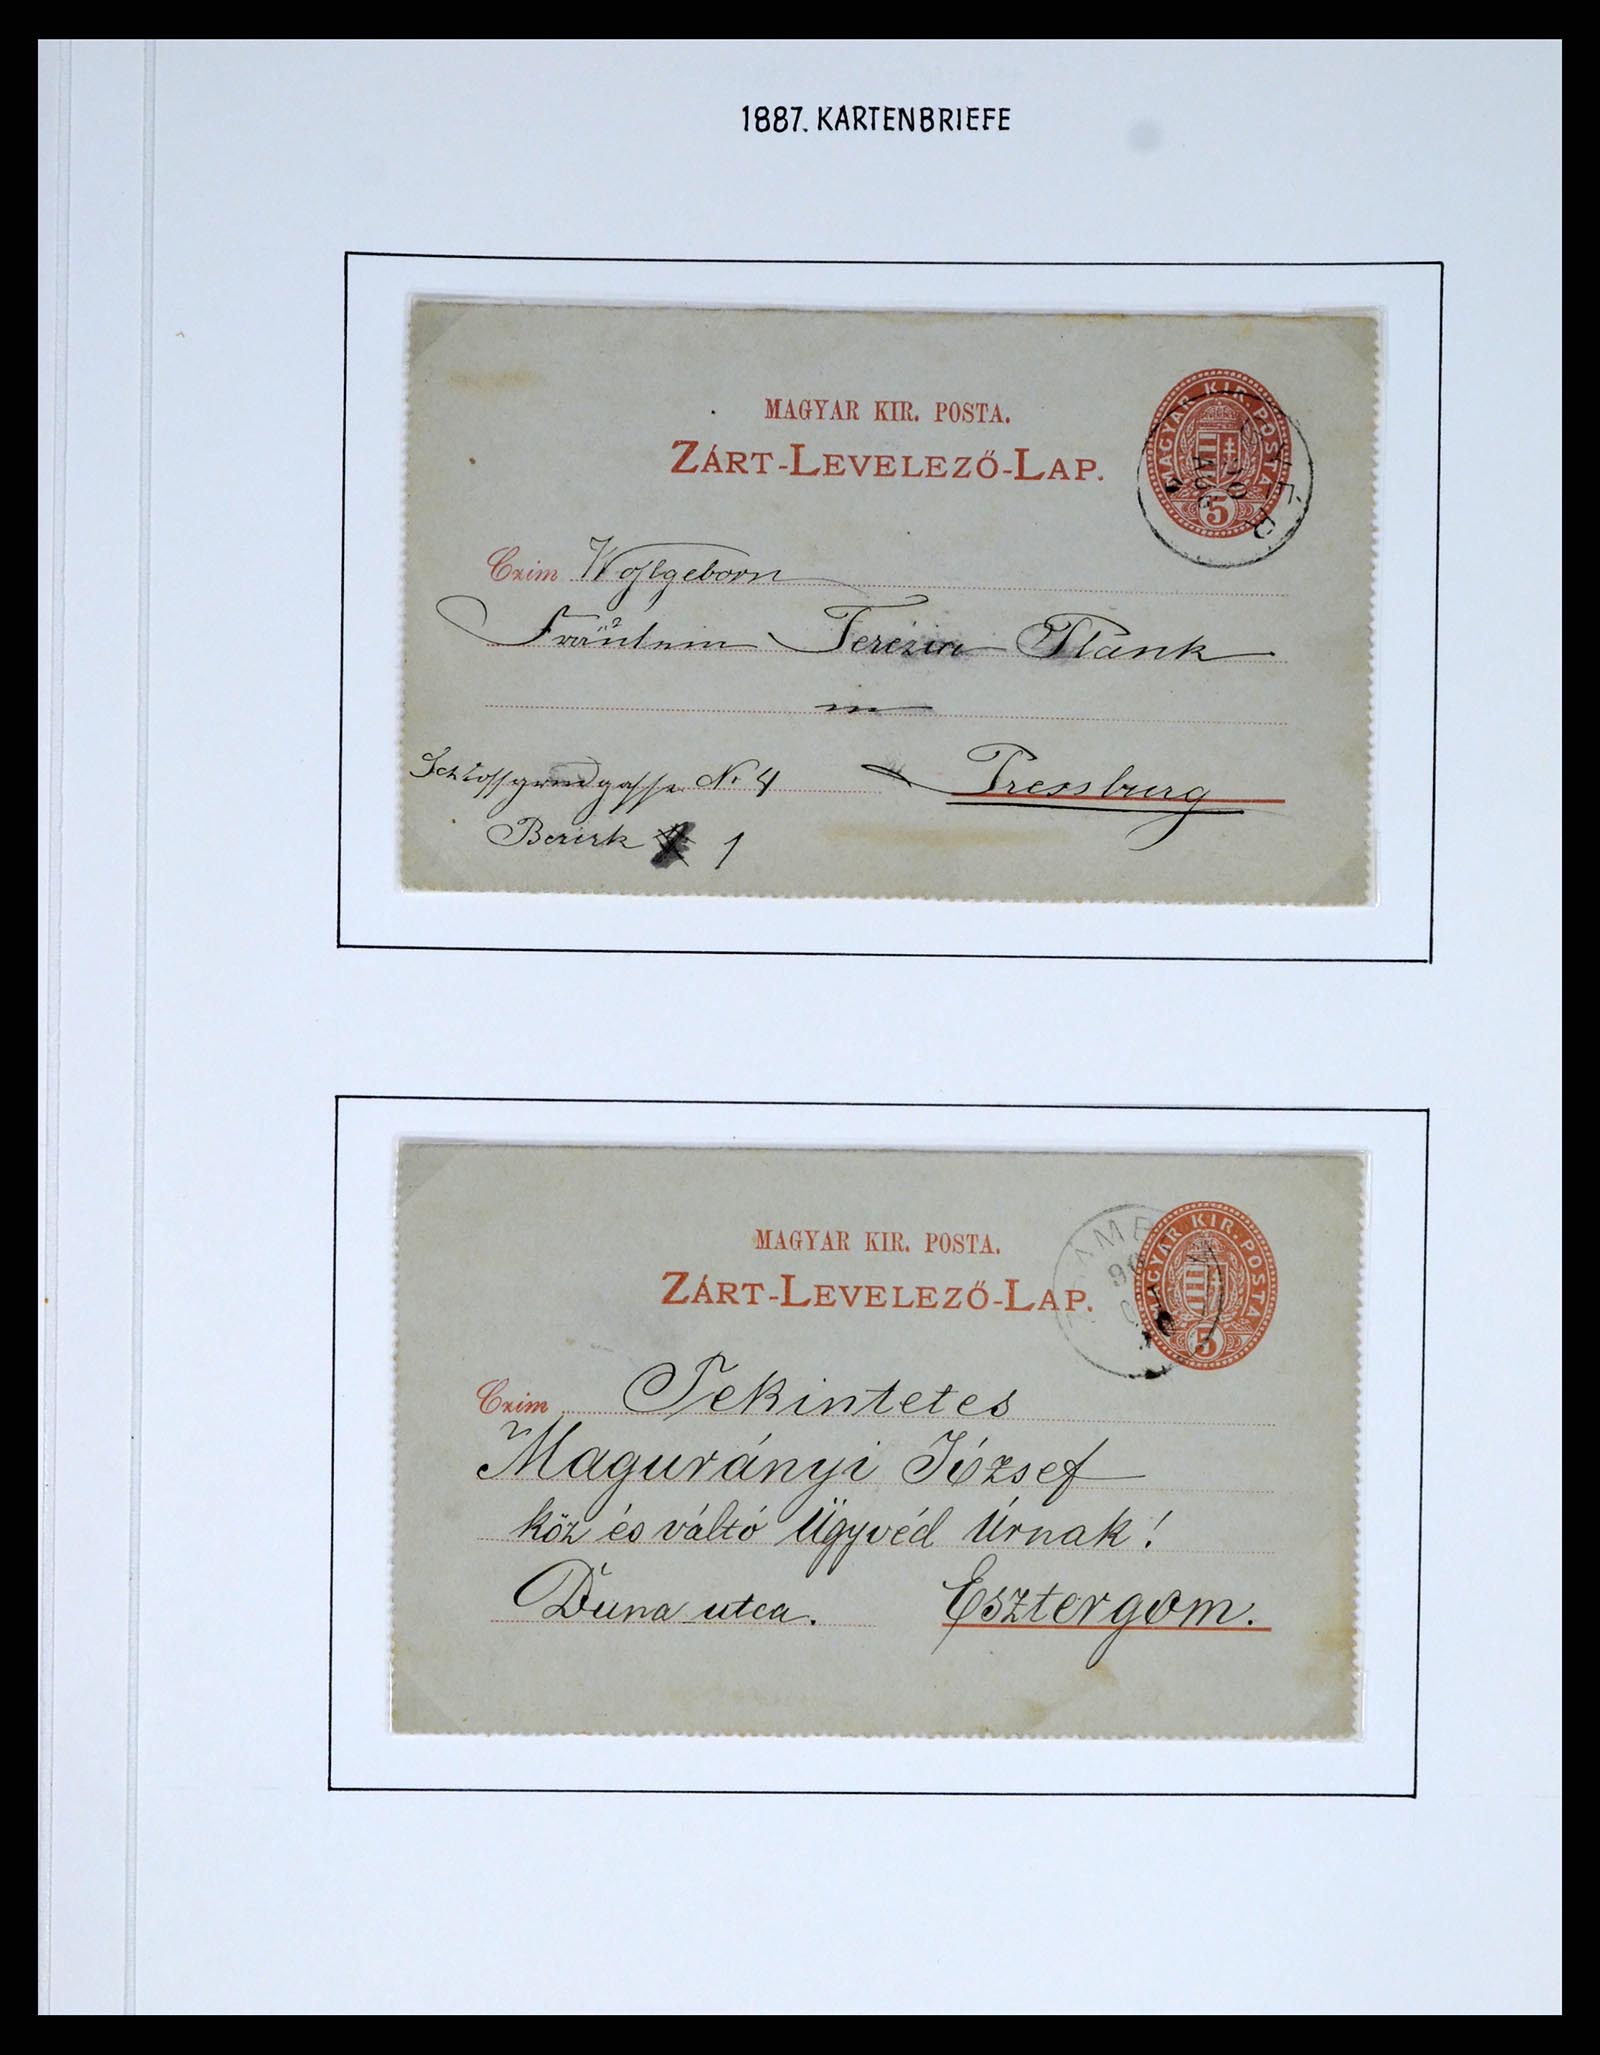 1887. KARTENBRIEFE
MAGYAR KIR. POSTA.
ZÁRT-LEVELEZŐ-LAP.
MAGYAR KIR. POSTA
5
Czim Wohlgeborn
Fräulein Terézia Plank
in
Schlossgrundgasse No 4 Pressburg
Bezirk 1
MAGYAR KIR. POSTA.
ZÁRT-LEVELEZŐ-LAP.
MAGYAR KIR. POSTA
5
Czim Tekintetes
Magurányi József
köz és váltó Ügyvéd Úrnak!
Duna utca. Esztergom.